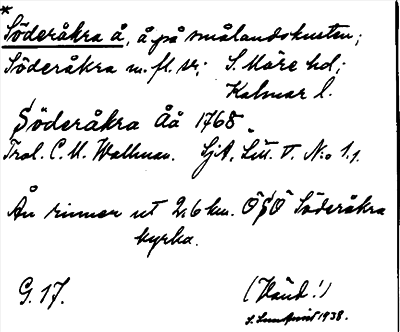 *
Söderåkra å, å på smålandskusten;
Söderåkra m. fl. sr; S. Möre hd;
Kalmar l.
Söderåkra Åå 1768
Tral. C. M. Wallman. SjA, Litt. V. N:o 1.1.
Ån rinner ut 2,6 km. ÖSÖ Söderåkra
kyrka.
G. 17. (Vänd!)
S. Sundqvist 1938.